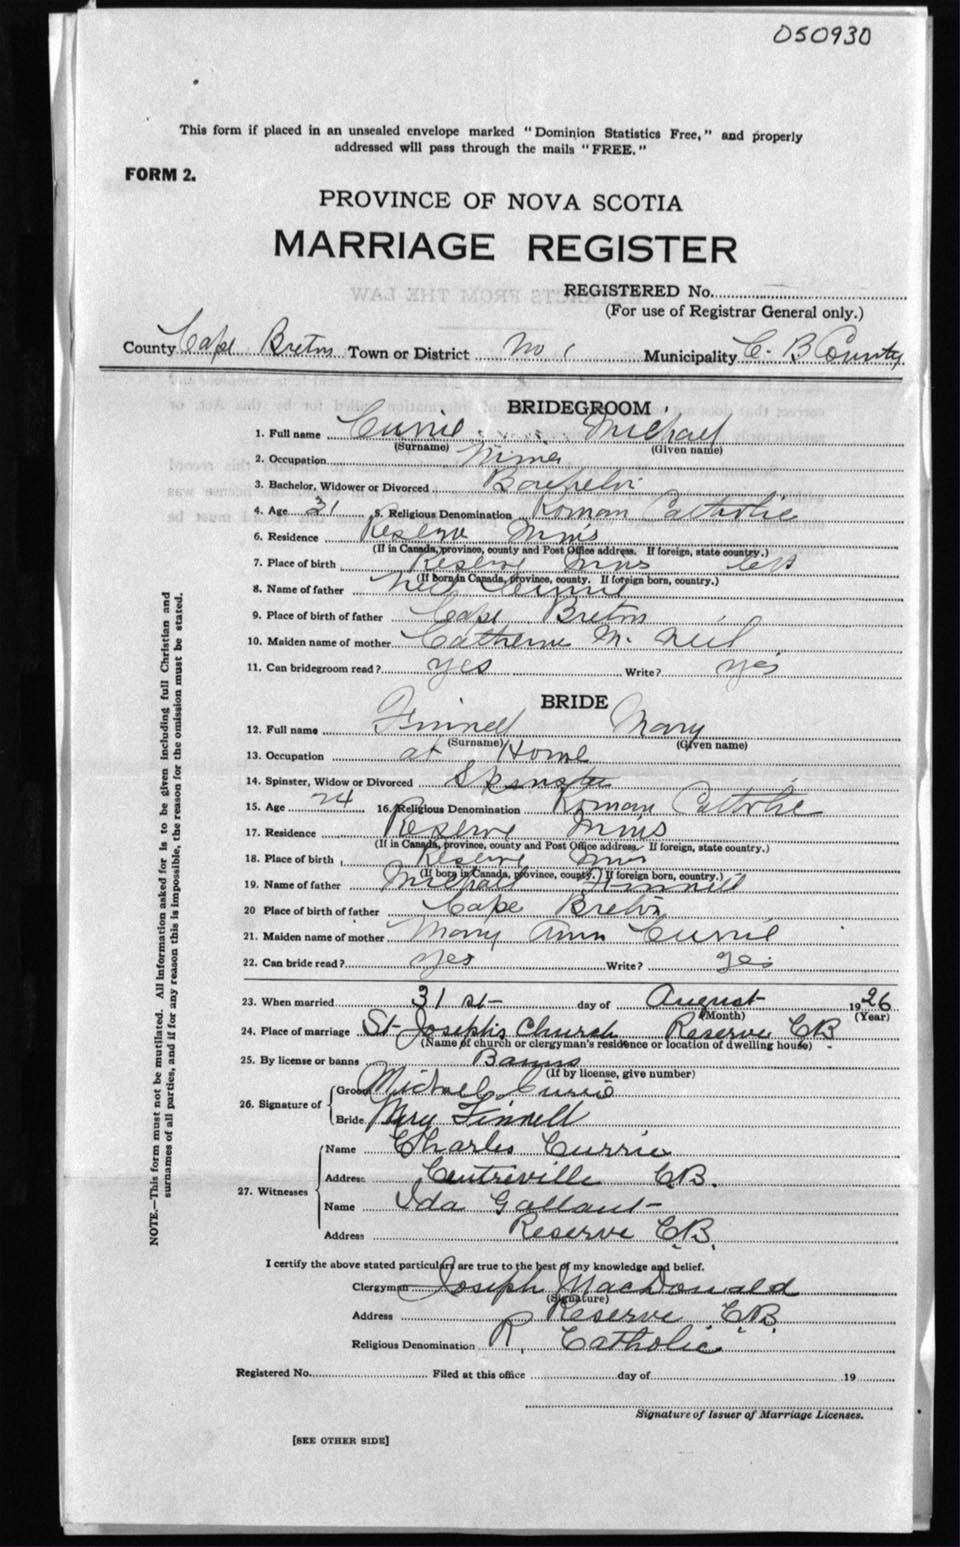 050930
This form if placed in an unsealed envelope marked "Dominion Statistics Free," and properly
addressed will pass through the mails "FREE."
FORM 2.
PROVINCE OF NOVA SCOTIA
MARRIAGE REGISTER
REGISTERED No.
(For use of Registrar General only.)
County Cape Breton Town or District No 1 Municipality C. B County
BRIDEGROOM
1. Full name Currie Michael
(Surname) (Given name)
2. Occupation Miner
3. Bachelor, Widower or Divorced Bachelor
4. Age 31 5. Religious Denomination Roman Catholic
6. Residence Reserve Mines
(If in Canada, province, county and Post Office address. If foreign, state country.)
7. Place of birth Reserve Mines
(If born in Canada, province, county. If foreign born, country.)
8. Name of father Neil Currie
9. Place of birth of father Cape Breton
10. Maiden name of mother Catherine Mc Neil
11. Can bridegroom read? yes Write? yes
BRIDE
12. Full name Finnell Mary
(Surname) (Given name)
13. Occupation at Home
14. Spinster, Widow or Divorced Spinster
15. Age 24 16. Religious Denomination Roman Catholic
17. Residence Reserve Mines
(If in Canada, province, county and Post Office address. If foreign, state country.)
18. Place of birth Reserve Mines
(If born in Canada, province, county.) If foreign born, country.)
19. Name of father Michael Finnell
20 Place of birth of father Cape Breton
21. Maiden name of mother Mary Ann Currie
22. Can bride read? yes Write? yes
23. When married 31 st day of August 1926
(Month) (Year)
24. Place of marriage St Joseph's Church Reserve CB
(Name of church or clergyman's residence or location of dwelling house)
25. By license or banns Banns
(If by license, give number)
26. Signature of Groom Michael Currie
Bride Mary Finnell
27. Witnesses Name Charles Currie
Address Centreville C.B.
Name Ida Gallant
Address Reserve C.B.
I certify the above stated particulars are true to the best of my knowledge and belief.
Clergyman Joseph MacDonald
(Signature)
Address Reserve C.B.
Religious Denomination R. Catholic
Registered No. Filed at this office day of 19
Signature of Issuer of Marriage Licenses.
[SEE OTHER SIDE]
NOTE.—This form must not be mutilated. All information asked for is to be given including full Christian and
surnames of all parties, and if for any reason this is impossible, the reason for the omission must be stated.